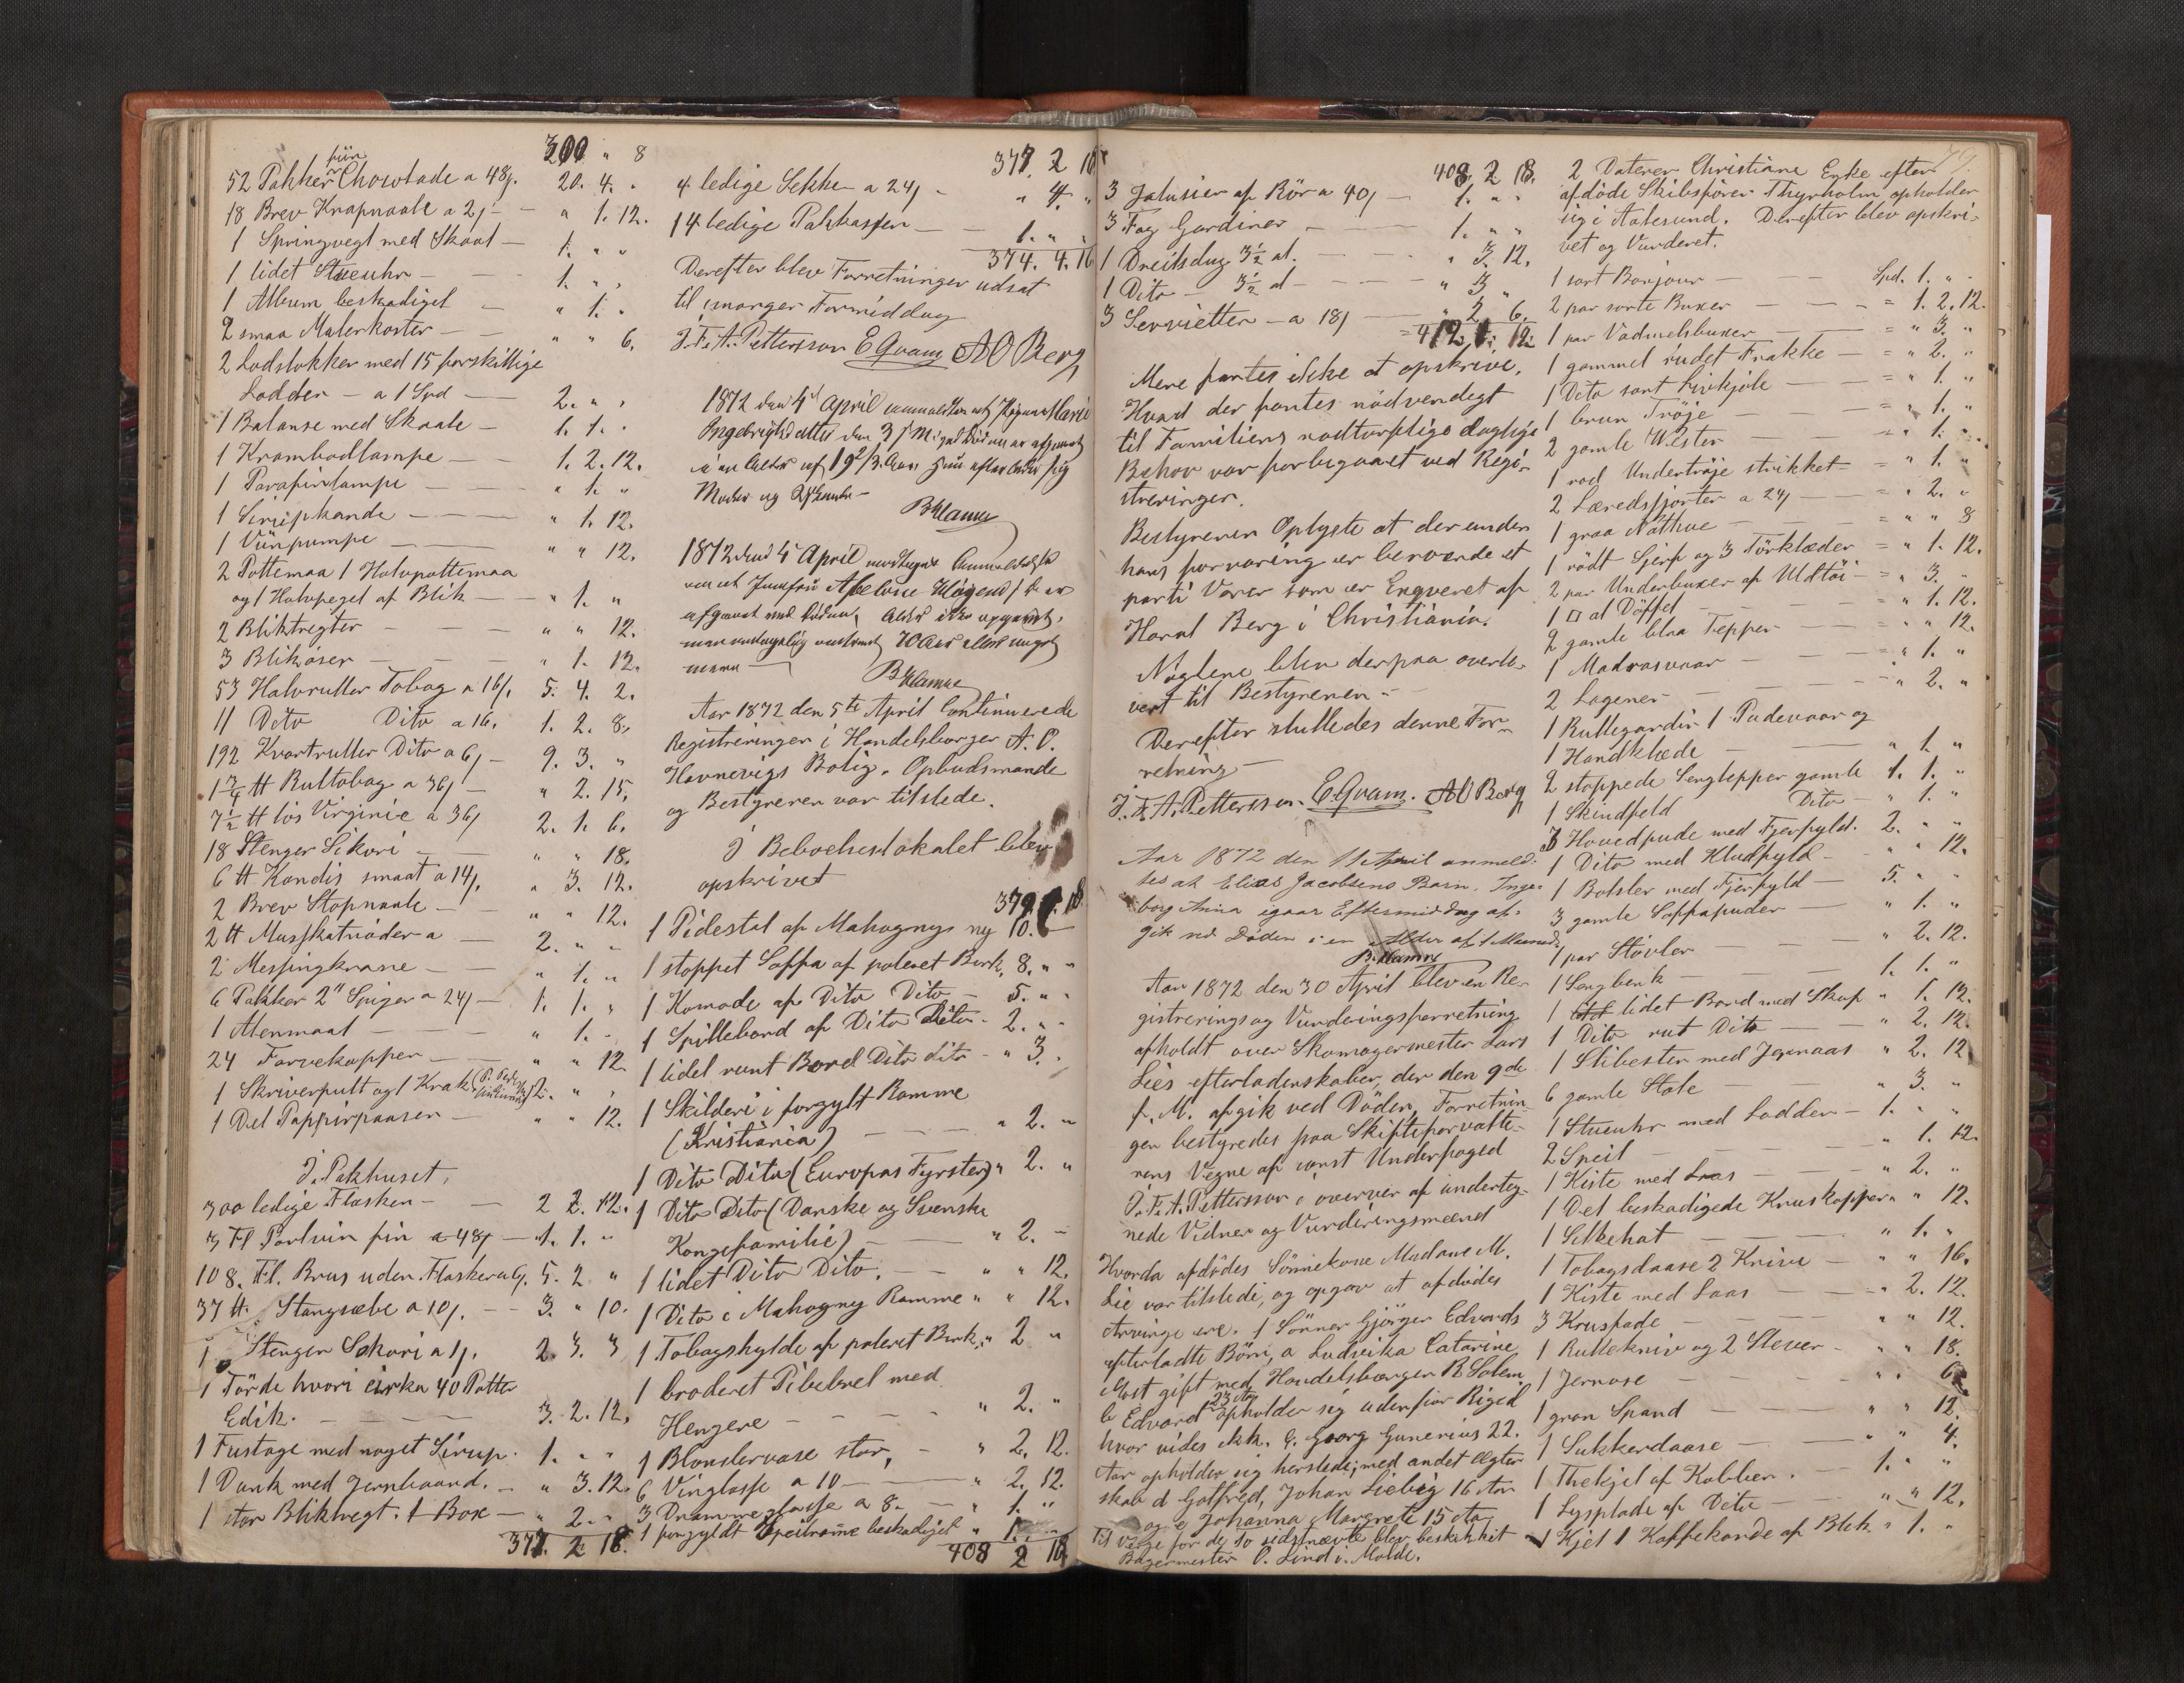 300 " 8
52 Pakker fiin Chowlade a 48/. 20. 4. "
18 Brev Knapnaale a 2/ - " 1. 12.
1 Springvegt med Skaal - 1. " "
1 lidet Stueuhr - 1. " "
1 Album beskadiget - " 1. "
2 smaa Malerkoster - " " 6.
2 Lodstokker med 15 forskillige
Lodder - a 1 Spd - 2. " "
1 Balanse med Skaale - 1. 1. "
1 Krambodlampe - 1. 2. 12.
1 Parafinlampe - " 1. "
1 Sirupskande - " 1. 12.
1 Viinpumpe - " " 12.
2 Pottemaa 1 Halvpottemaa
og 1 Halvpegel af Blik - " 1. "
2 Bliktregter - " " 12.
3 Blikøser - " 1. 12.
53 Halvruller Tobag a 16/. 5. 4. 2.
11 Dito Dito a 16. 1. 2. 8.
192 Kvartruller Dito a 6/ - 9. 3. "
1 3/4 tt Rultobag a 36/ - " 2. 15.
7 1/2 tt løs Virginie a 36/ 2. 1. 6.
18 Stenger Sikori - " " 18.
6 tt Kandis smaat a 14/. " 3. 12.
2 Brev Stopnaale - " " 12.
2 tt Musskatnøder a - 2. " "
2 Messingkrane - " 1. "
6 Pakker 2" Spiger a 24/ - 1. 1. "
1 Alenmaal - " 1. -
24 Farvekopper - " " 12.
1 Skriverpult og 1 Krak - 2. " "
1 Del Pappirpaaser - " " 12.
I Pakhuset,
300 ledige Flasker - 2 2. 12.
3 Fl Portvin fin a 48/ - 1. 1. "
108. Fl. Brus uden Flasker a 6/. 5. 2 "
37 tt. Stangsæbe a 10/. - 3. " 10.
Stenger Sikori a 1/. 2. 3. 3
1 Tørde hvori cirka 40 Potter
Edik. - 3. 2. 12.
1 Fustage med noget Sirup. 1. " "
1 Dunk med Jernbaand. - " 3. 12.
1 stor Blikvegt. 1 Box - " 2. "
377. 2 18.
377. 2 18
4 ledige Sekke a 24/ - " 4. "
14 ledige Pakkasser - 1. " "
374. 4. 16
Derefter blev Forretninger udsat
til imorgen Formiddag
J. F. A. Pettersson E Qvam A O Berg
1872 den 4de April
Ingebrigtsdatter den 3 d. M. ved Døden er afgaaet
i en Alder af 19 2/3 Aar
Moder og
B Hamre
1872 den 4 April modtages Anmeldelse
om at Jomfru Abelone
afgaaet ved Døden, Alder ikke opgivet,
70 Aar
B Hamre
Aar 1872 den 5te April Continuerede
Registreringer i Handelsborger A. O.
Havnevigs Bolig. Opbudsmande
og Bestyreren var tilstede.
I Beboelseslokalet blev
opskrivet
1 Pidestal af Mahogny ny 10.
1 stoppet Soffa af poleret Birk. 8. " "
1 Komode af Dito Dito - 5. " "
1 Spillebord af Dito Dito - 2. " "
1 lidet runt Bord Dito dito - " 3. "
1 Skilderi i forgylt Ramme
(Kristiania) - " 2. "
1 Dito Dito (Europas Fyrster) " 2. "
1 Dito Dito (Danske og Svenske
Kongefamilie) - " 2. -
1 lidet Dito Dito. - " " 12.
1 Dito i Mahogny Ramme " " 12.
1 Tobagshylde af poleret Birk. " 2 "
1 broderet Pibebrel med
Hengere - " 2. "
1 Blomstervase stor, - " 2. 12.
6 Vinglasse a 10 - " 2. 12.
3 Drammeglasse a 8. - " 1. "
1 forgyldt Speilramme beskadiget " 1. "
408 2 18
408. 2 18.
3 Jalusier af Rør a 40/ - 1. " "
3 Fag Gardiner - 1. " "
1 Dreilsdug 3 1/2 al. - " 3. 12.
1 Dito - 3 1/2 al - " 3 "
3 Servietter - a 18/ - " 2 6.
412. 1. 12.
Mere fantes ikke at opskrive.
Hvad der fantes nødvendigt
til Familiens nødtørftige daglige
Behov var forbigaaet ved Regi-
streringen.
Bestyreren Oplyste at der under
hans forvaring er beroende et
parti Varer som er Enqveret af
Harat Berg i Christiania.
Nøglene blev derpaa overle-
vert til Bestyreren -
Derefter sluttedes denne For-
retning -
J. F. A. Pettersson. E. Qvam. A O Berg
Aar 1872 den 11 April anmeld-
tes at Elias Jacobsens Barn. Inge-
borg Anna igaar Eftermiddag af-
gik ved Døden i en Alder af 1 Maaned
B. Hamre
Aar 1872 den 30 April blev en Re-
gistrerings og Vurderingsforretning
afholdt over Skomagermester Lars
Lies efterladenskaber, der den 9de
f. M. afgik ved Døden, Forretnin-
gen bestyredes paa Skifteforvalte-
rens Vegne af const Underfoged
J. F. A. Pettersson i overver af underteg-
nede Vidner og Vurderingsmænd
Hvorda afdødes Sønnekone Madame M.
Lie var tilstede, og opgav at afdødes
Arvinge ere. 1 Sønner Gjørger Edvards
efterladte Børn, a Ludvika Catarine
Most gift med Handelsborger R. Solem
b Edvard 23 Aar opholder sig udenfor Riged
hvor vides ikk. c. Georg Gunerius 22.
Aar opholder sig herstede; med andet Ægter
skab d Gotfred, Johan Liebig 16 Aar
og e Johanna Margrete 15 Aar
til Verge for de To sidstnævnte blev beskikket
Bagermester O. Lind i Molde.
79
2 Daterer Christiane Enke efter
afdøde Skibsfører Thyrholm opholder
sig i Aalesund. Derefter blev opskri-
vet og Vurderet.
1 sort Bonjour - Spd. 1. " -
2 par sorte Buxer - = 1. 2. 12.
1 par Vadmelsbuxer - = " 3. "
1 gammel rudet Frakke - = " 2. "
1 Dito sort Livkjole - = " 1. "
1 brun Trøje - = " 1. "
2 gamle Vester - = " 1. "
1 rød Undertrøje strikket - = " 1. "
2 Læredsskjorter a 24/ - = " 2. "
1 graa Nathue - = " " 8
1 rødt Sjerf og 3 Tørklæder = " 1. 12.
2 par Underbuxer af Uldtøi - = " 3. "
1 □ al Døffel - " 1. 12.
2 gamle blaa Tepper - " " 12.
1 Madrasvaar - " 1. "
2 Lagener - " 2. "
1 Rullegardin 1 Pudevaar og
1 Handklæde - " 1. "
2 stoppede Sengtepper gamle 1. 1. "
1 Skindfeld Dito - " 1. "
3 Hovedpude med Fjerfyld. 2. " "
1 Dito med Kludfyld - " " 12.
1 Bolster med Fjerfyld - 5. " "
3 gamle Soffapuder - " 1. "
1 par Støvler - " 2. 12.
1 Sengbenk - 1. 1. "
1 lidet Bord med Skap " 1. 12.
1 Dito rut Dito - " 2. 12.
1 Slibesten med Jernaas " 2. 12
6 gamle Stole - " 3. "
1 Stueuhr med Lodder - 1. " "
2 Speil - " 1. 12.
1 Kiste med Laas - " 2. "
1 Del beskadigede Kruskopper " " 12.
1 Silkehat - " 1. "
1 Tobagsdaase 2 Knive - " " 16.
1 Kiste med Laas - " 2. 12.
3 Krusfade - " " 12.
1 Rullekniv og 2 Slever - " " 18.
1 Jernose - " " 6
1 grøn Spand - " " 12.
1 Sukkerdaase - " " 4.
1 Thekjel af Kobber. - 1. " "
1 Lysplade af Dito - " " 12.
1 Kjel 1 Kaffekande af Blik " 1. "